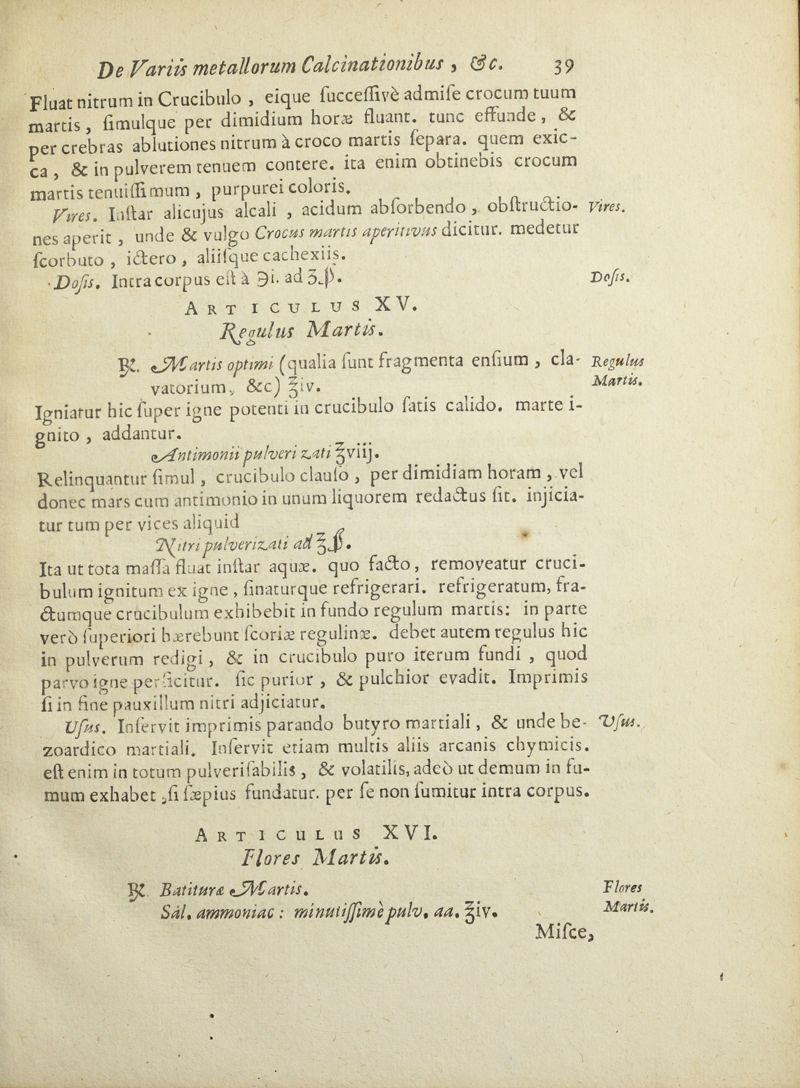 De Variis metallorum Calcinationibus , &c. 39
Fluat nitrum in Crucibulo , eique ſucceſſivè admiſe crocum tuum
martis , ſimulque per dimidium horæ fluant. tunc effunde , &
per crebras ablutiones nitrum à croco martis ſepara. quem exic-
ca , & in pulverem tenuem contere. ita enim obtinebis crocum
martis tenuiſſimum , purpurei coloris.
Vires. Inſtar alicujus alcali , acidum abſorbendo , obſtructio- Vires.
nes aperit , unde & vulgo Crocus martis aperitivus dicitur. medetur
ſcorbuto , ictero , aliiſque cachexiis.
Doſis. Intra corpus eſt à ℈i. ad ʒβ. Doſis.
ARTICULUS XV.
Regulus Martis.
℞. Martis optimi (qualia ſunt fragmenta enſium , cla- Regulus
vatorium, &c) ℥iv. Martis.
Igniatur hic ſuper igne potenti in crucibulo ſatis calido. marte i-
gnito , addantur.
Antimonii pulverizati ℥viij.
Relinquantur ſimul , crucibulo clauſo , per dimidiam horam , vel
donec mars cum antimonio in unum liquorem redactus ſit. injicia-
tur tum per vices aliquid
Nitri pulverizati ad ℥β.
Ita ut tota maſſa fluat inſtar aquæ. quo facto, removeatur cruci-
bulum ignitum ex igne , ſinaturque refrigerari. refrigeratum, fra-
ctumque crucibulum exhibebit in fundo regulum martis: in parte
verò ſuperiori hærebunt ſcoriæ regulinæ. debet autem regulus hic
in pulverum redigi , & in crucibulo puro iterum fundi , quod
parvo igne perficitur. ſic purior , & pulchior evadit. Imprimis
ſi in fine pauxillum nitri adjiciatur.
Uſus. Inſervit imprimis parando butyro martiali, & unde be- Vſus.
zoardico martiali. Inſervit etiam multis aliis arcanis chymicis.
eſt enim in totum pulveriſabilis , & volatilis, adeò ut demum in fu-
mum exhabet , ſi ſæpius fundatur. per ſe non ſumitur intra corpus.
ARTICULUS XVI.
Flores Martis.
℞. Batituræ Martis. Flores
Sal. ammoniac : minutiſſimè pulv. aa. ℥iv. Martis.
Miſce,